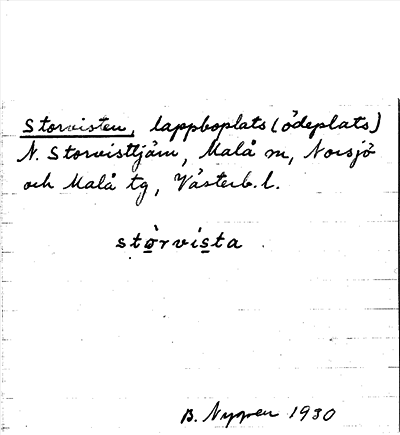 Storvisten, lappboplats (ödeplats)
N. Storvisttjärn, Malå sn, Norsjö
och Malå tg, Västerb. l.
stòrvista
B. Nygren 1930